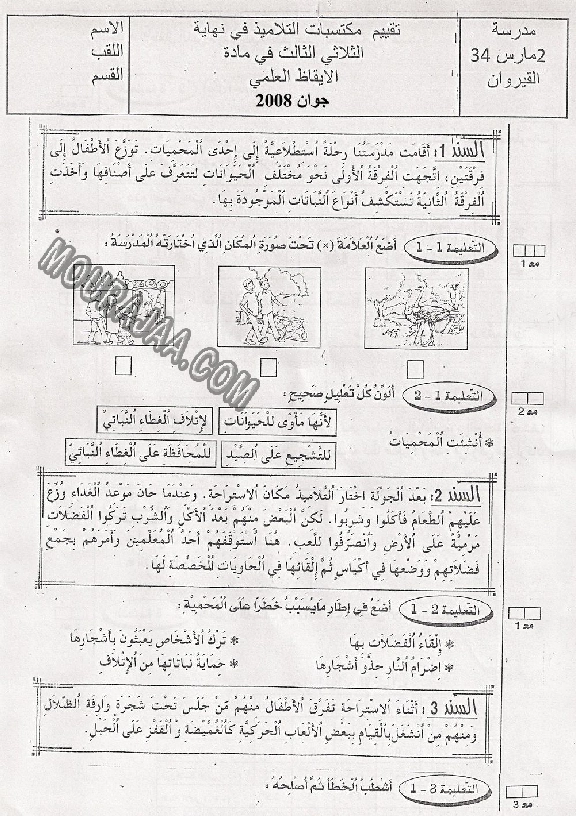 مدرسة
2مارس 34
القيروان
تقييم مكتسبات التلاميذ في نهاية
الثلاثي الثالث في مادة
الايقاظ العلمي
جوان 2008
الاسم
اللقب
القسم
السند 1: أقامت مدرستنا رحلة استطلاعية إلى إحدى المحميات. توزع الأطفال إلى
فرقتين، اتجهت الفرقة الأولى نحو مختلف الحيوانات لتتعرف على أصنافها وأخذت
الفرقة الثانية تستكشف أنواع النباتات الموجودة بها.
التعليمة 1 - 1 أضع العلامة (×) تحت صورة المكان الذي اختارته المدرسة:
مع 1
MOURAJAA.COM
التعليمة 1 - 2 ألون كل تعليل صحيح:
مع 2
لأنها مأوى للحيوانات
لإتلاف الغطاء النباتي
* أنشئت المحميات
للتشجيع على الصيد
للمحافظة على الغطاء النباتي
السند 2: بعد الجولة اختار التلاميذ مكان الاستراحة. وعندما حان موعد الغداء وزع
عليهم الطعام فأكلوا وشربوا. لكن البعض منهم بعد الأكل والشرب تركوا الفضلات
مرمية على الأرض وانصرفوا للعب. هنا استوقفهم أحد المعلمين وأمرهم بجمع
فضلاتهم ووضعها في أكياس ثم إلقائها في الحاويات المخصصة لها.
التعليمة 2 - 1 أضع في إطار ما يسبب خطرا على المحمية:
مع 1
* إلقاء الفضلات بها
* ترك الأشخاص يعبثون بأشجارها
* إضرام النار حذو أشجارها
* حماية نباتاتها من الإتلاف
السند 3: أثناء الاستراحة تفرق الأطفال منهم من جلس تحت شجرة وارفة الظلال
ومنهم من انشغل بالقيام ببعض الألعاب الحركية كالغميضة والقفز على الحبل.
التعليمة 3 - 1 أشطب الخطأ ثم أصلحه:
مع 3